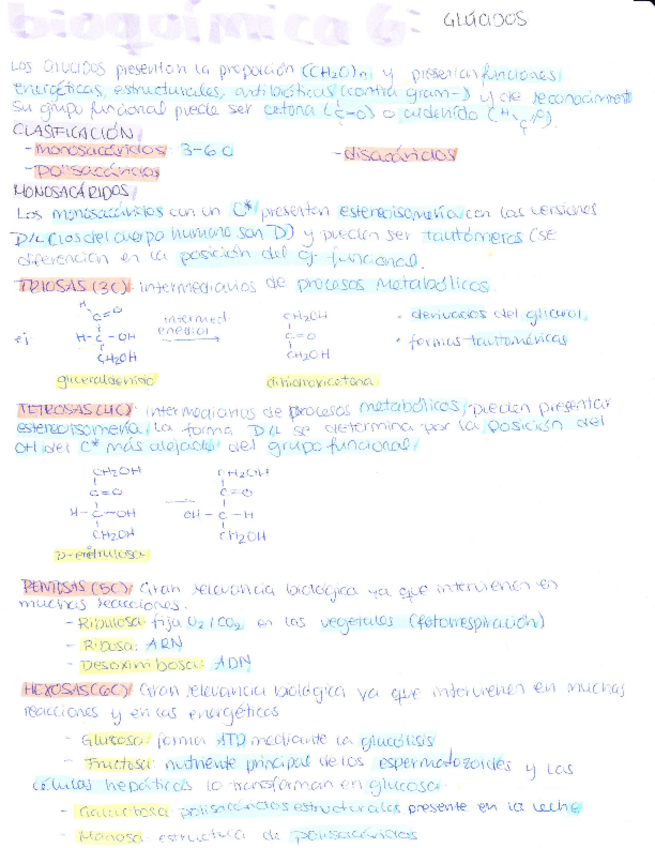 bioquímica 6: GLÚCIDOS
Los Glúcidos presentan la proporción (CH2O)n y presentan funciones
energéticas, estructurales, antibióticas (contra gram-) y de reconocimiento
Su grupo funcional puede ser cetona (C=O) o aldehído (H C O).
CLASIFICACIÓN
- monosacáridos: 3-6 C - disacáridos
- Polisacáridos
MONOSACÁRIDOS
Los monosacáridos con un C* presentan estereoisomería con las versiones
D/L (los del cuerpo humano son D) y pueden ser tautómeros (se
diferencian en la posición del g. funcional.
TRIOSAS (3C): intermediarios de procesos metabólicos.
H
C=O intermed. CH2OH · derivados del glicerol
ej H-C-OH enediol C=O · formas tautoméricas
CH2OH CH2OH
gliceraldehído dihidroxicetona
TETROSAS (4C): intermediarios de procesos metabólicos, pueden presentar
estereoisomería. La forma D/L se determina por la posición del
OH del C* más alejado del grupo funcional.
CH2OH CH2OH
C=O C=O
H-C-OH OH-C-H
CH2OH CH2OH
D-eritrulosa
PENTOSAS (5C): Gran relevancia biológica ya que intervienen en
muchas reacciones.
- Ribulosa: fija O2/CO2 en las vegetales (fotorrespiración)
- Ribosa: ARN
- Desoxirribosa: ADN
HEXOSAS (6C): Gran relevancia biológica ya que intervienen en muchas
reacciones y en las energéticas
- Glucosa: forma ATP mediante la glucólisis
- Fructosa: nutriente principal de los espermatozoides y las
células hepáticas lo transforman en glucosa.
- Galactosa: polisacáridos estructurales presente en la leche
- Manosa: estructura de polisacáridos